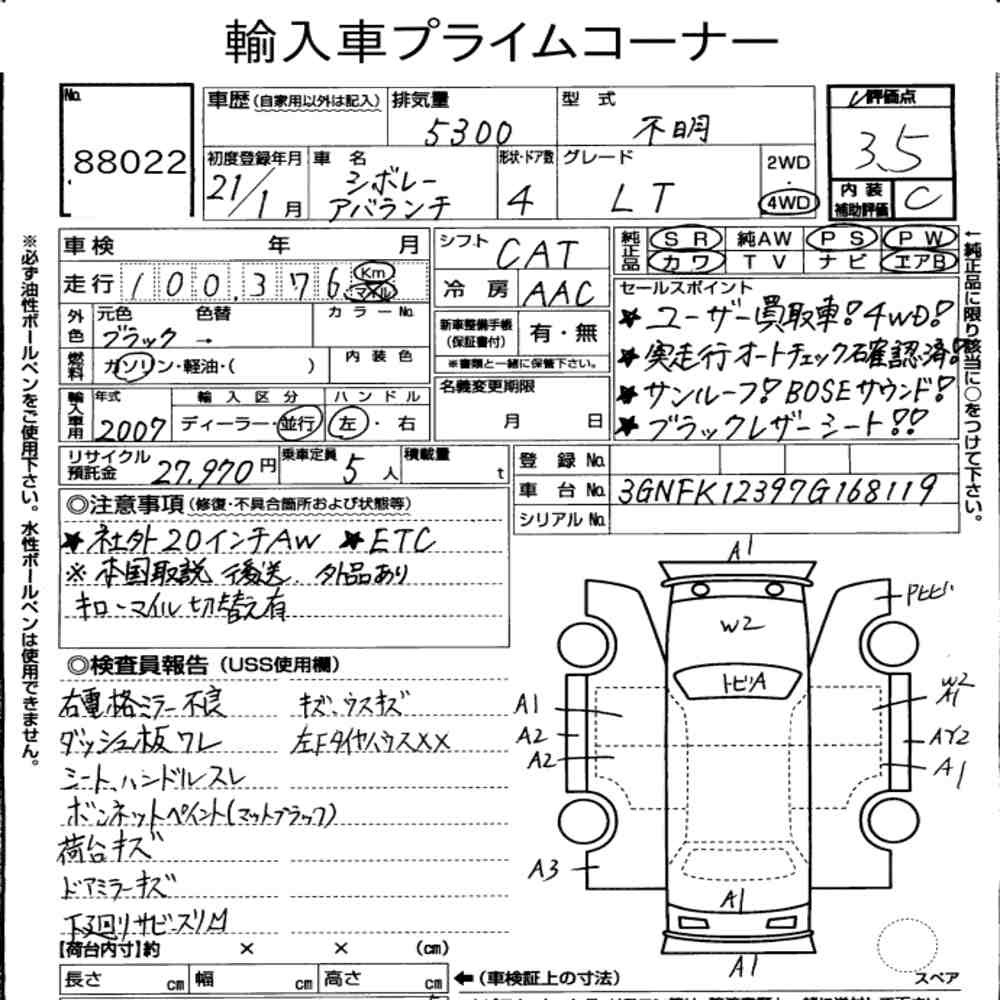 輸入車プライムコーナー
No. 88022
車歴(自家用以外は記入) 排気量 5300 型式 不明
評価点 3.5
初度登録年月 21/1月 車名 シボレー アバランチ 形状・ドア数 4 グレード LT 2WD・4WD
内装補助評価 C
※必ず油性ボールペンをご使用下さい。水性ボールペンは使用できません。
車検 年 月
走行 100,376 Km マイル
外色 元色 ブラック → 色替 カラーNo.
燃料 ガソリン・軽油・( ) 内装色
輸入車用 年式 2007 輸入区分 ディーラー・並行 ハンドル 左・右
シフト CAT
冷房 AAC
新車整備手帳(保証書付) 有・無
※書類と一緒に保管下さい。
名義変更期限 月 日
純正品 SR 純AW PS PW
カワ TV ナビ エアB
セールスポイント
★ユーザー買取車!4WD!
★実走行オートチェック確認済!
★サンルーフ!BOSEサウンド!
★ブラックレザーシート!!
←純正品に限り該当に○をつけて下さい。
リサイクル預託金 27,970円 乗車定員 5人 積載量 t
登録No.
車台No. 3GNFK12397G168119
シリアルNo.
◎注意事項(修復・不具合箇所および状態等)
★社外20インチAW ★ETC
※本国取説 後送 外品あり
キロ→マイル切替え有
◎検査員報告(USS使用欄)
右電格ミラー不良 キズ、ウスキズ
ダッシュ板ワレ 左FタイヤハウスXX
シート、ハンドルスレ
ボンネットペイント(マットブラック)
荷台キズ
ドアミラーキズ
下廻りサビスリM
A1
Pヒビ
W2
トビA
A1
A2
A2
A3
W2
A1
AY2
A1
A1
A1
スペア
【荷台内寸】約 × × (cm)
長さ cm 幅 cm 高さ cm ←(車検証上の寸法)